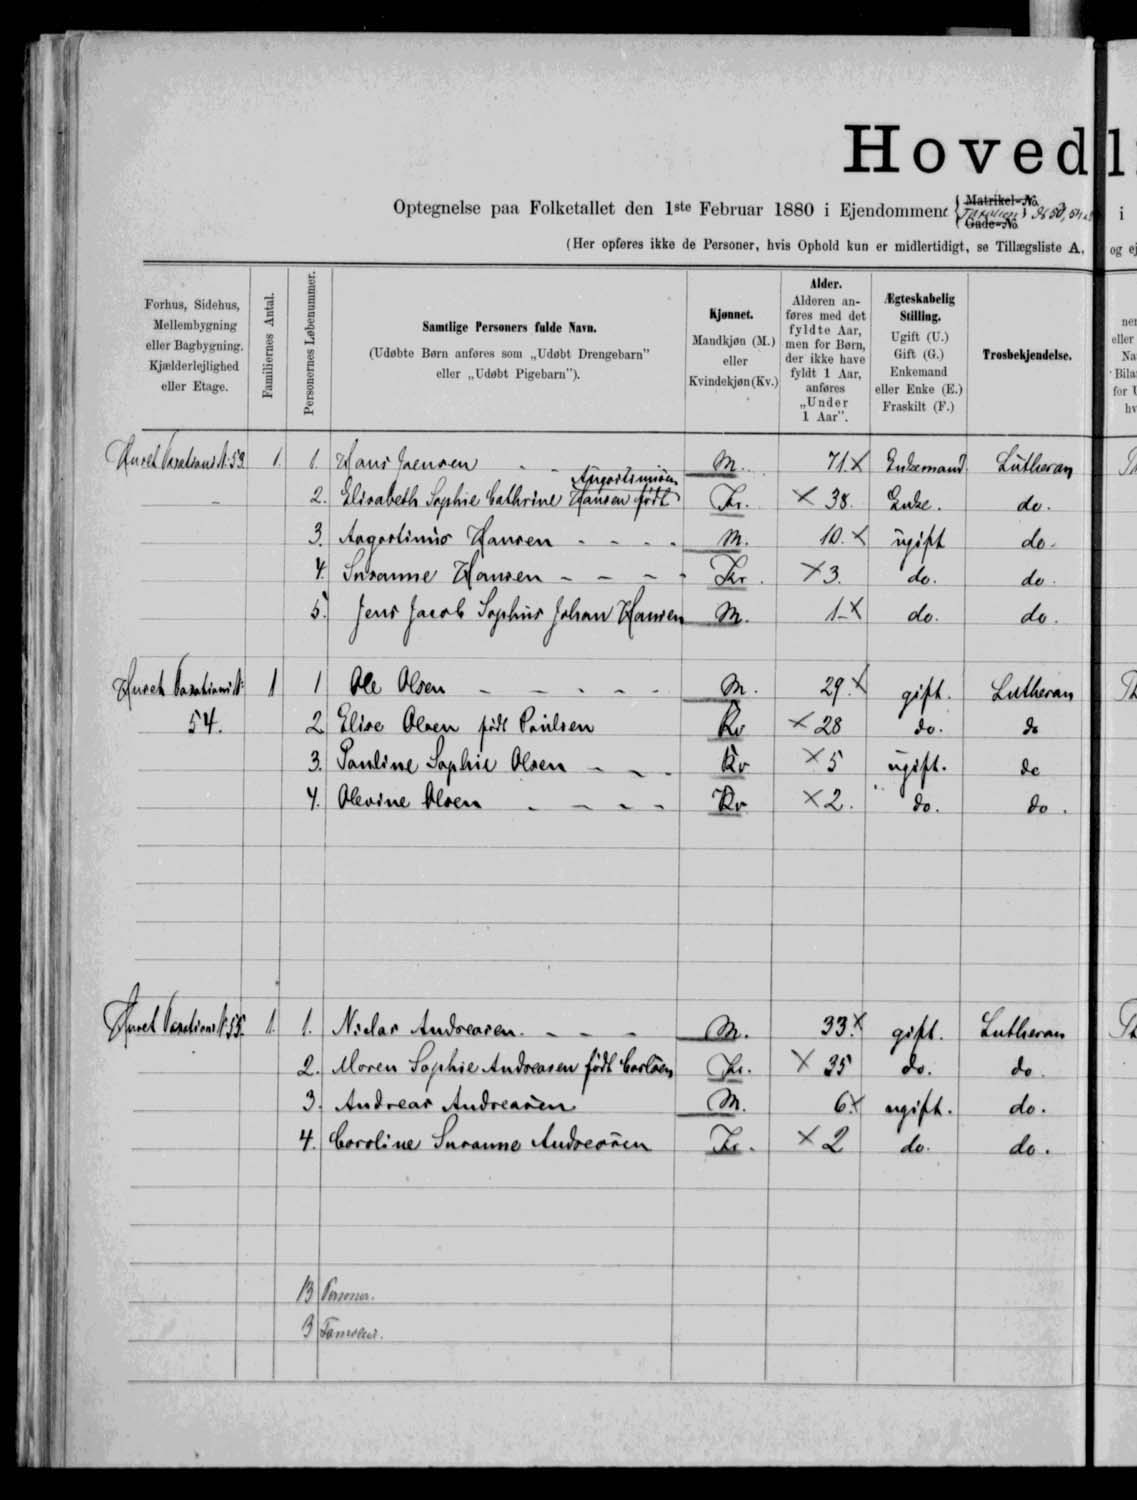 Hoved
Optegnelse paa Folketallet den 1ste Februar 1880 i Ejendommene Matrikel-No. Gade-No. i
(Her opføres ikke de Personer, hvis Ophold kun er midlertidigt, se Tillægsliste A, og ej
Forhus, Sidehus, Mellembygning eller Bagbygning. Kjælderlejlighed eller Etage.
Familiernes Antal.
Personernes Løbenummer.
Samtlige Personers fulde Navn.
(Udøbte Børn anføres som „Udøbt Drengebarn” eller „Udøbt Pigebarn”).
Kjønnet. Mandkjøn (M.) eller Kvindekjøn (Kv.)
Alder. Alderen anføres med det fyldte Aar, men for Børn, der ikke have fyldt 1 Aar, anføres „Under 1 Aar”.
Ægteskabelig Stilling. Ugift (U.) Gift (G.) Enkemand eller Enke (E.) Fraskilt (F.)
Trosbekjendelse.
Huset Taxations N. 53 1. 1. Hans Jensen M. 71. X Enkemand Lutheran
Augustinusen
2. Elisabeth Sophie Cathrine Hansen født Kv. X 38. Enke. do.
3. Augustinus Hansen M. 10. X ugift do.
4. Susanne Hansen Kv. X 3. do. do.
5. Jens Jacob Sophus Johan Hansen M. 1 X do. do.
Huset Taxations N. 1 1 Ole Olsen M. 29. X gift. Lutheran
54. 2 Elise Olsen født Paulsen Kv X 28 do. do
3. Pauline Sophie Olsen Kv X 5 ugift. do
4. Olevine Olsen Kv X 2. do. do.
Huset Taxations N. 55. 1. 1. Niclas Andreasen. M. 33. X gift. Lutheran
2. Maren Sophie Andreasen født Carlsen Kv. X 35 do. do
3. Andreas Andreasen M. 6. X ugift. do.
4. Caroline Susanne Andreasen Kv. X 2 do. do.
13 Personer.
3 Familier.